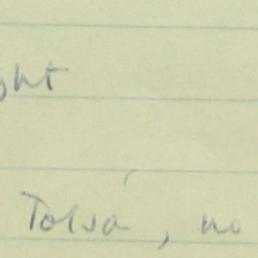 ght
Tolsá, no